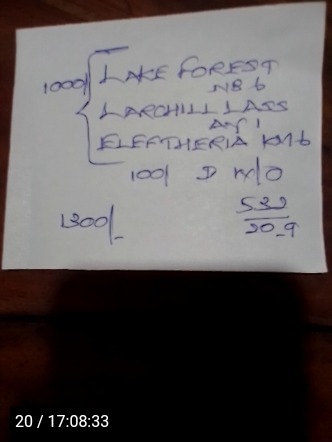 1000/ LAKE FOREST
NB 6
LARCHILL LASS
AY 1
ELEFTHERIA KM 6
100/ D W/O
532
1300/- 20_9
20 / 17:08:33